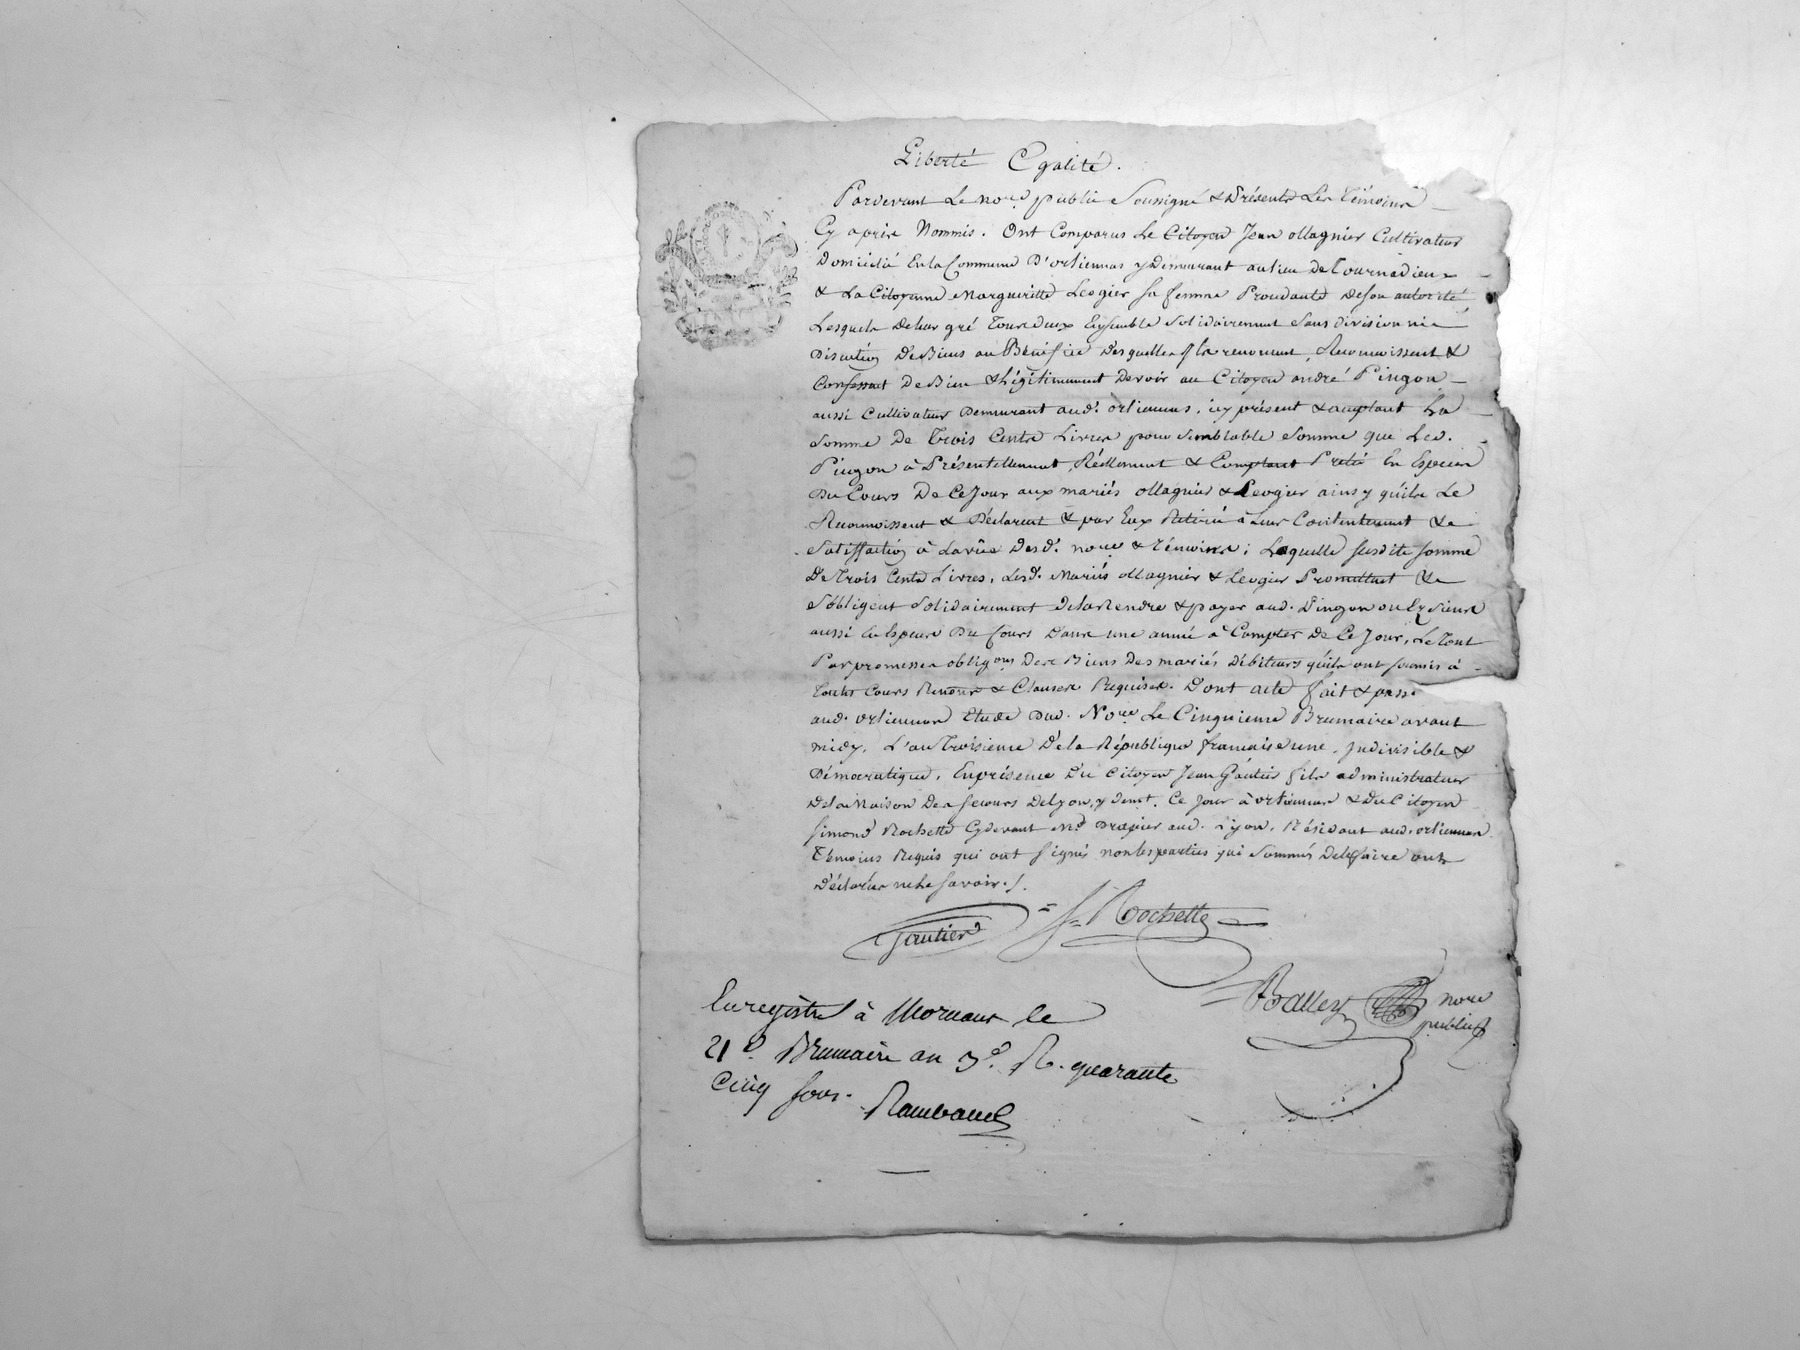 Liberté Egalité.
Pardevant Le no.re public Soussigné & Présents Les Témoins
Cy après Nommés. Ont Comparus Le Citoyen Jean ollagnier Cultivateur
Domicilié En la Commune D'orliennas y Demeurant au lieu de Tournadieu
& La Citoyenne Margueritte Leogier sa femme Procédante de son autorité
Lesquels De leur gré Tous deux Ensemble Solidairement Sans division ni
Discution De Biens au Bénéfice Desquelles Ils renoncent, Reconnoissent &
Confessent De Bien & Légitimement Devoir au Citoyen andré Pingon
aussi Cultivateur Demeurant aud. orliennas, icy présent & acceptant La
Somme De Trois Cents Livres pour Semblable Somme que Led.
Pingon à Présentellement, Réellement & Comptant Prêté En Espèces
Du Cours De Ce Jour aux mariés ollagnier & Leogier ainsy qu'ils Le
Reconnoissent & Déclarent & par Eux Retiré à Leur Contentement &
Satisffaction à La vüe Desd. no.re & Témoins; Laquelle susdite somme
De Trois Cents Livres, Lesd. Mariés ollagnier & Leogier Promettent &
S'obligent Solidairement De la Rendre & payer aud. Pingon ou Ez Siens
aussi En Espèces Du Cours Dans une année à Compter De Ce Jour, Le Tout
Par promesses obligons Des Biens Des mariés Débiteurs qu'ils ont soumis à
Toutes Cours Renonc & Clauses Requises. Dont acte fait & passé
aud. orliennas Etude Dud. No.re Le Cinquieme Brumaire avant
midy, L'an Troisieme De la République française une, indivisible &
Démocratique, En présence Du Citoyen Jean Gautier fils administrateur
De la Maison Des secours De Lyon, y demt. Ce Jour à orliennas & Du Citoyen
Simond Rochette Cy devant Md Drapier aud. Lyon, Résidant aud. orliennas
Témoins Requis qui ont signés non les parties qui Sommés De le faire ont
Déclarées ne le Savoir./.
Gautier = f. Rochette
Balley no.re
public
Enregistré à Mornant le
21e. Brumaire an 3e. R. quarante
Cinq sous.
Rambaud